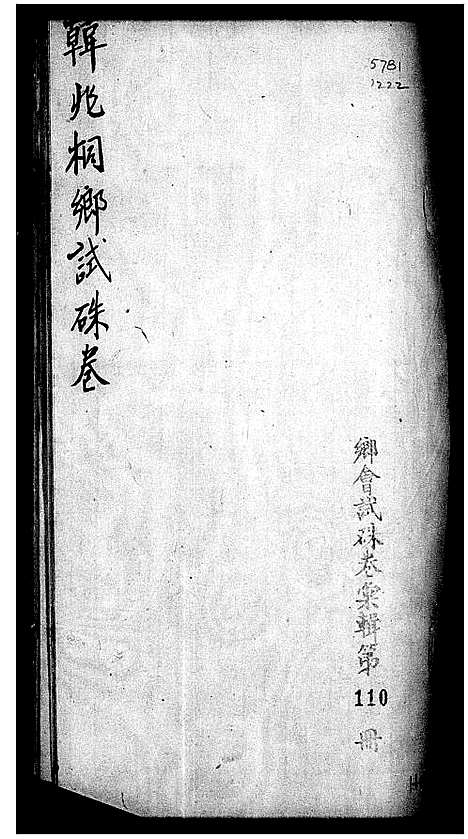 韓兆桐鄉試硃卷
5781
1222
鄉會試硃卷彙輯第
110
冊